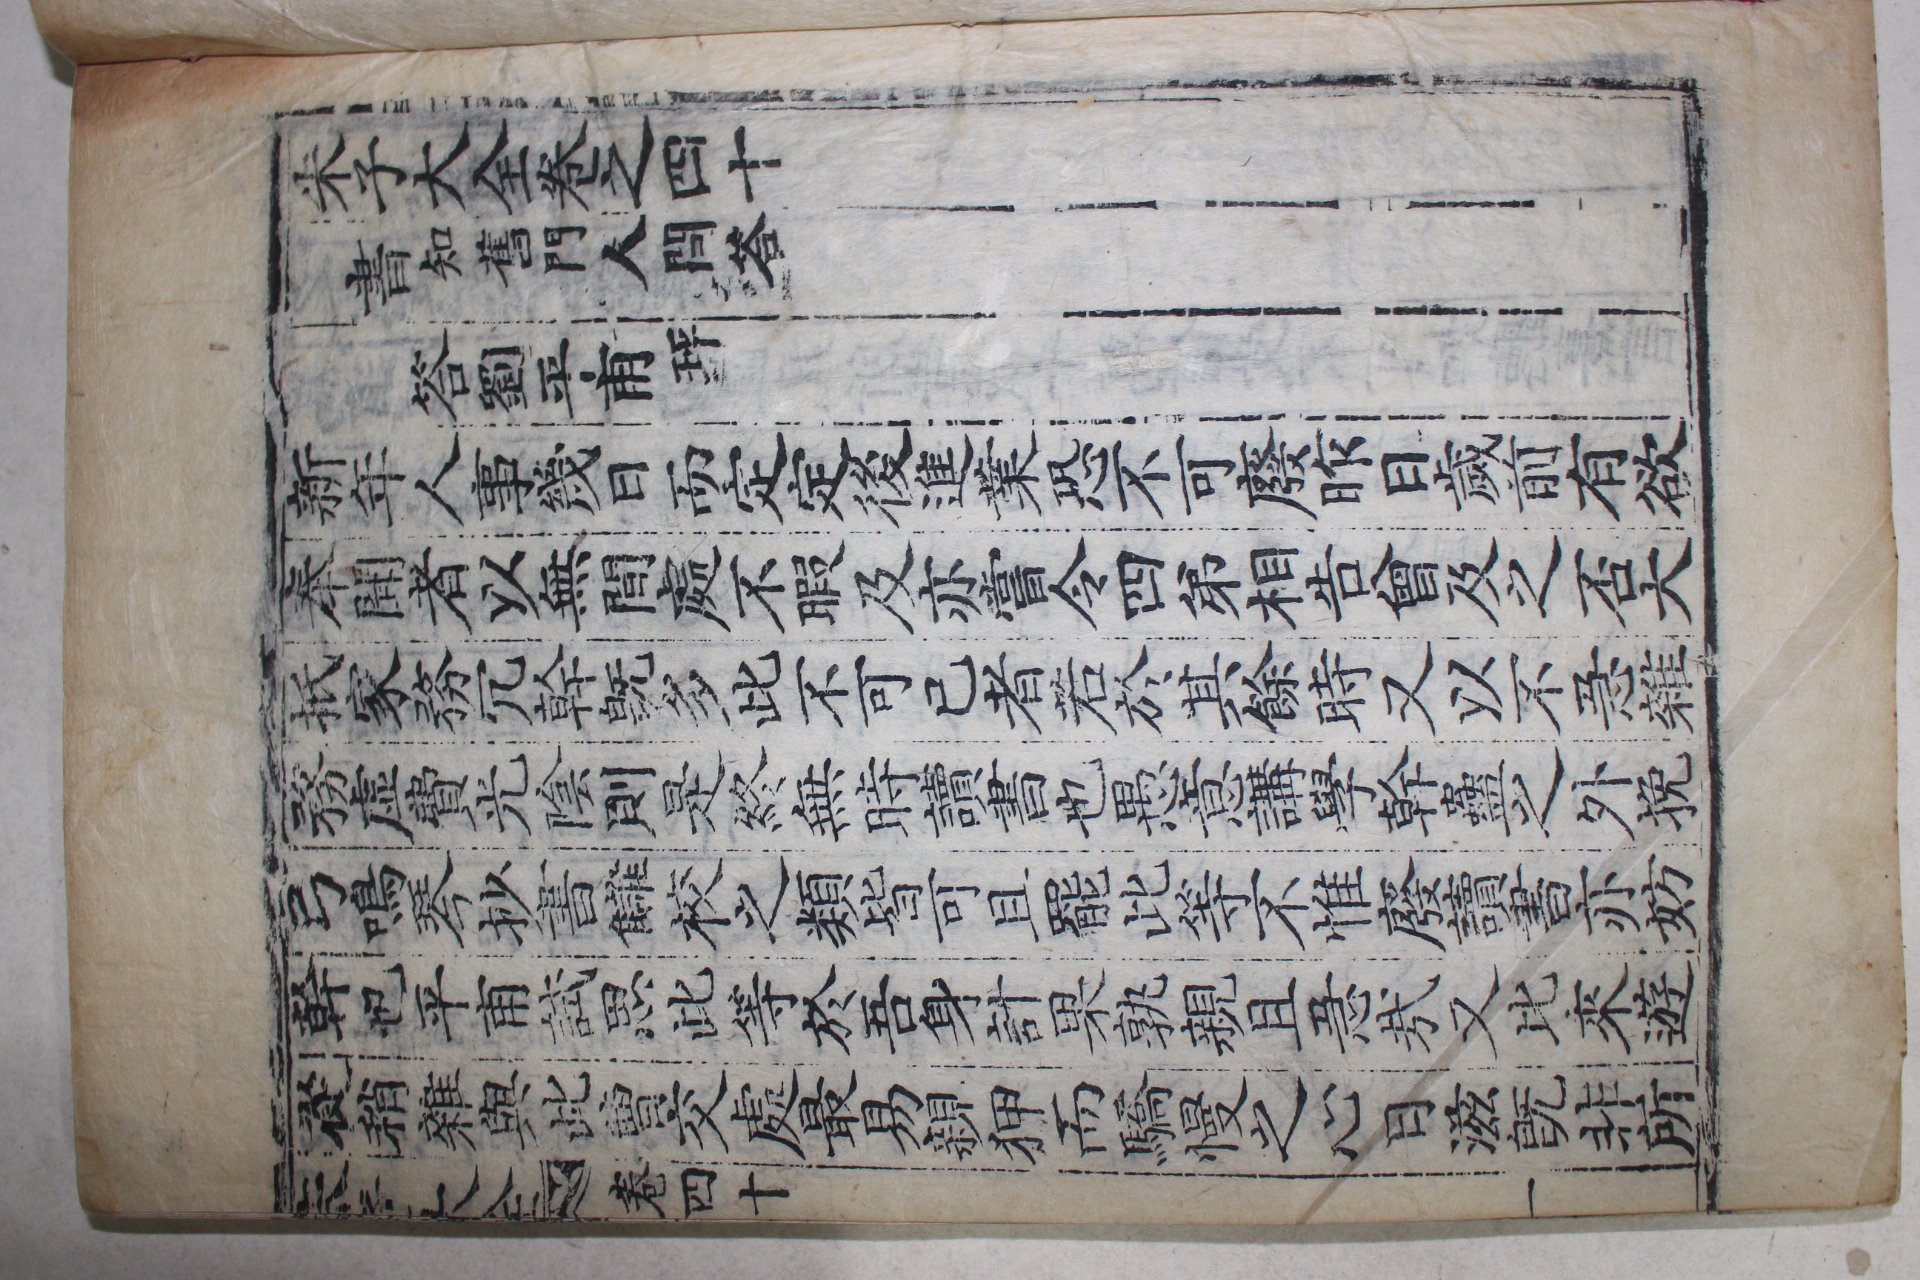 朱子大全卷之四十
書知舊門人問答
答劉平甫玶
新年人事幾日而定定後進業恐不可廢昨日歲前有欲
奉聞者以無間處不暇及亦嘗令四弟相告曾及之否大
抵家務冗幹既多此不可已者若於其餘時又以不急雜
務虛費光陰則是終無時讀書也愚意講學幹蠱之外挽
弓鳴琴抄書讎校之類皆可且罷此等不惟廢讀書亦妨
幹也平甫試思此等於吾身計果孰親且急哉又比來遊
從稍雜與此曹交處最易親狎而驕慢之心日滋既非所
朱子大全 卷四十 一